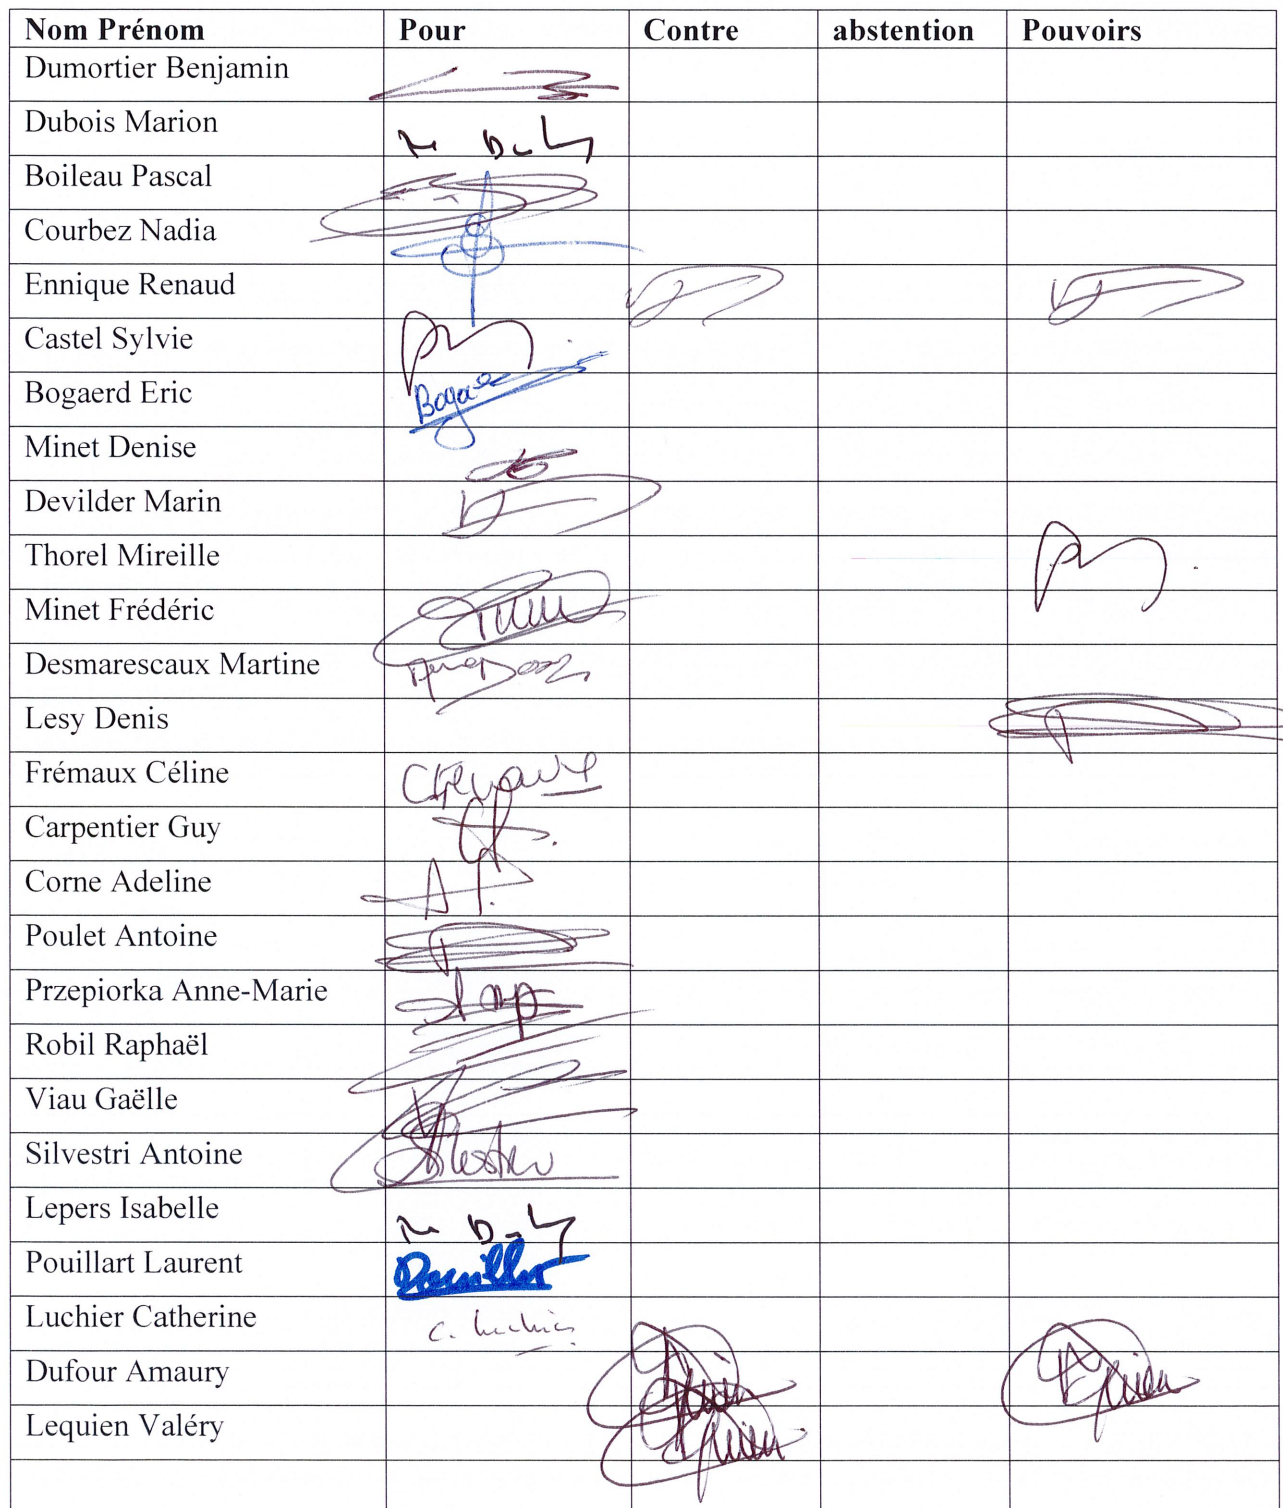 Nom Prénom Pour Contre abstention Pouvoirs
Dumortier Benjamin
Dubois Marion
Boileau Pascal
Courbez Nadia
Ennique Renaud
Castel Sylvie
Bogaerd Eric
Minet Denise
Devilder Marin
Thorel Mireille
Minet Frédéric
Desmarescaux Martine
Lesy Denis
Frémaux Céline
Carpentier Guy
Corne Adeline
Poulet Antoine
Przepiorka Anne-Marie
Robil Raphaël
Viau Gaëlle
Silvestri Antoine
Lepers Isabelle
Pouillart Laurent
Luchier Catherine
Dufour Amaury
Lequien Valéry